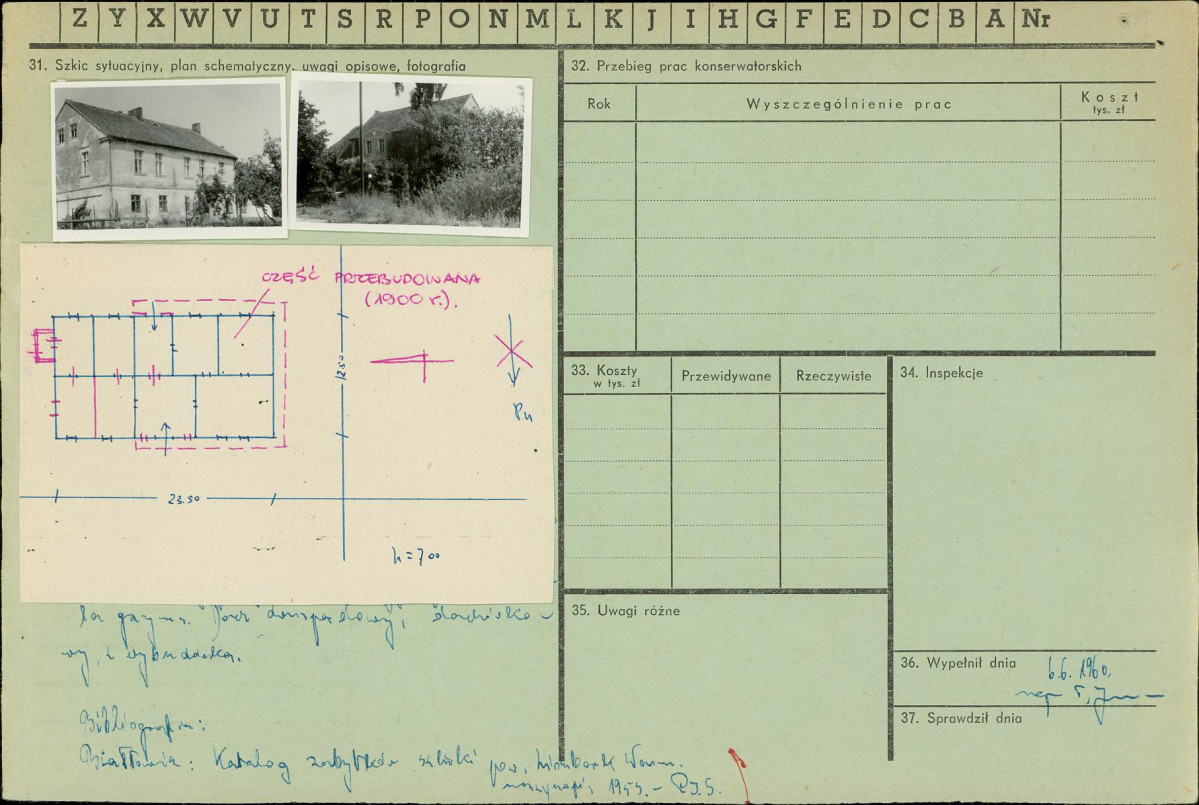 Z Y X W V U T S R P O N M L K J I H G F E D C B A Nr
31. Szkic sytuacyjny, plan schematyczny, uwagi opisowe, fotografia
CZĘŚĆ PRZEBUDOWANA
(1900 r.).
12.50
Pn
23.50
h = 7.00
wy, z wybudówką.
Bibliografia:
Katalog zabytków sztuki pow.
1953. - P.I.S.
32. Przebieg prac konserwatorskich
Rok Wyszczególnienie prac Koszt
tys. zł
33. Koszty
w tys. zł
Przewidywane Rzeczywiste
34. Inspekcje
35. Uwagi różne
36. Wypełnił dnia 6.6. 1960.
37. Sprawdził dnia